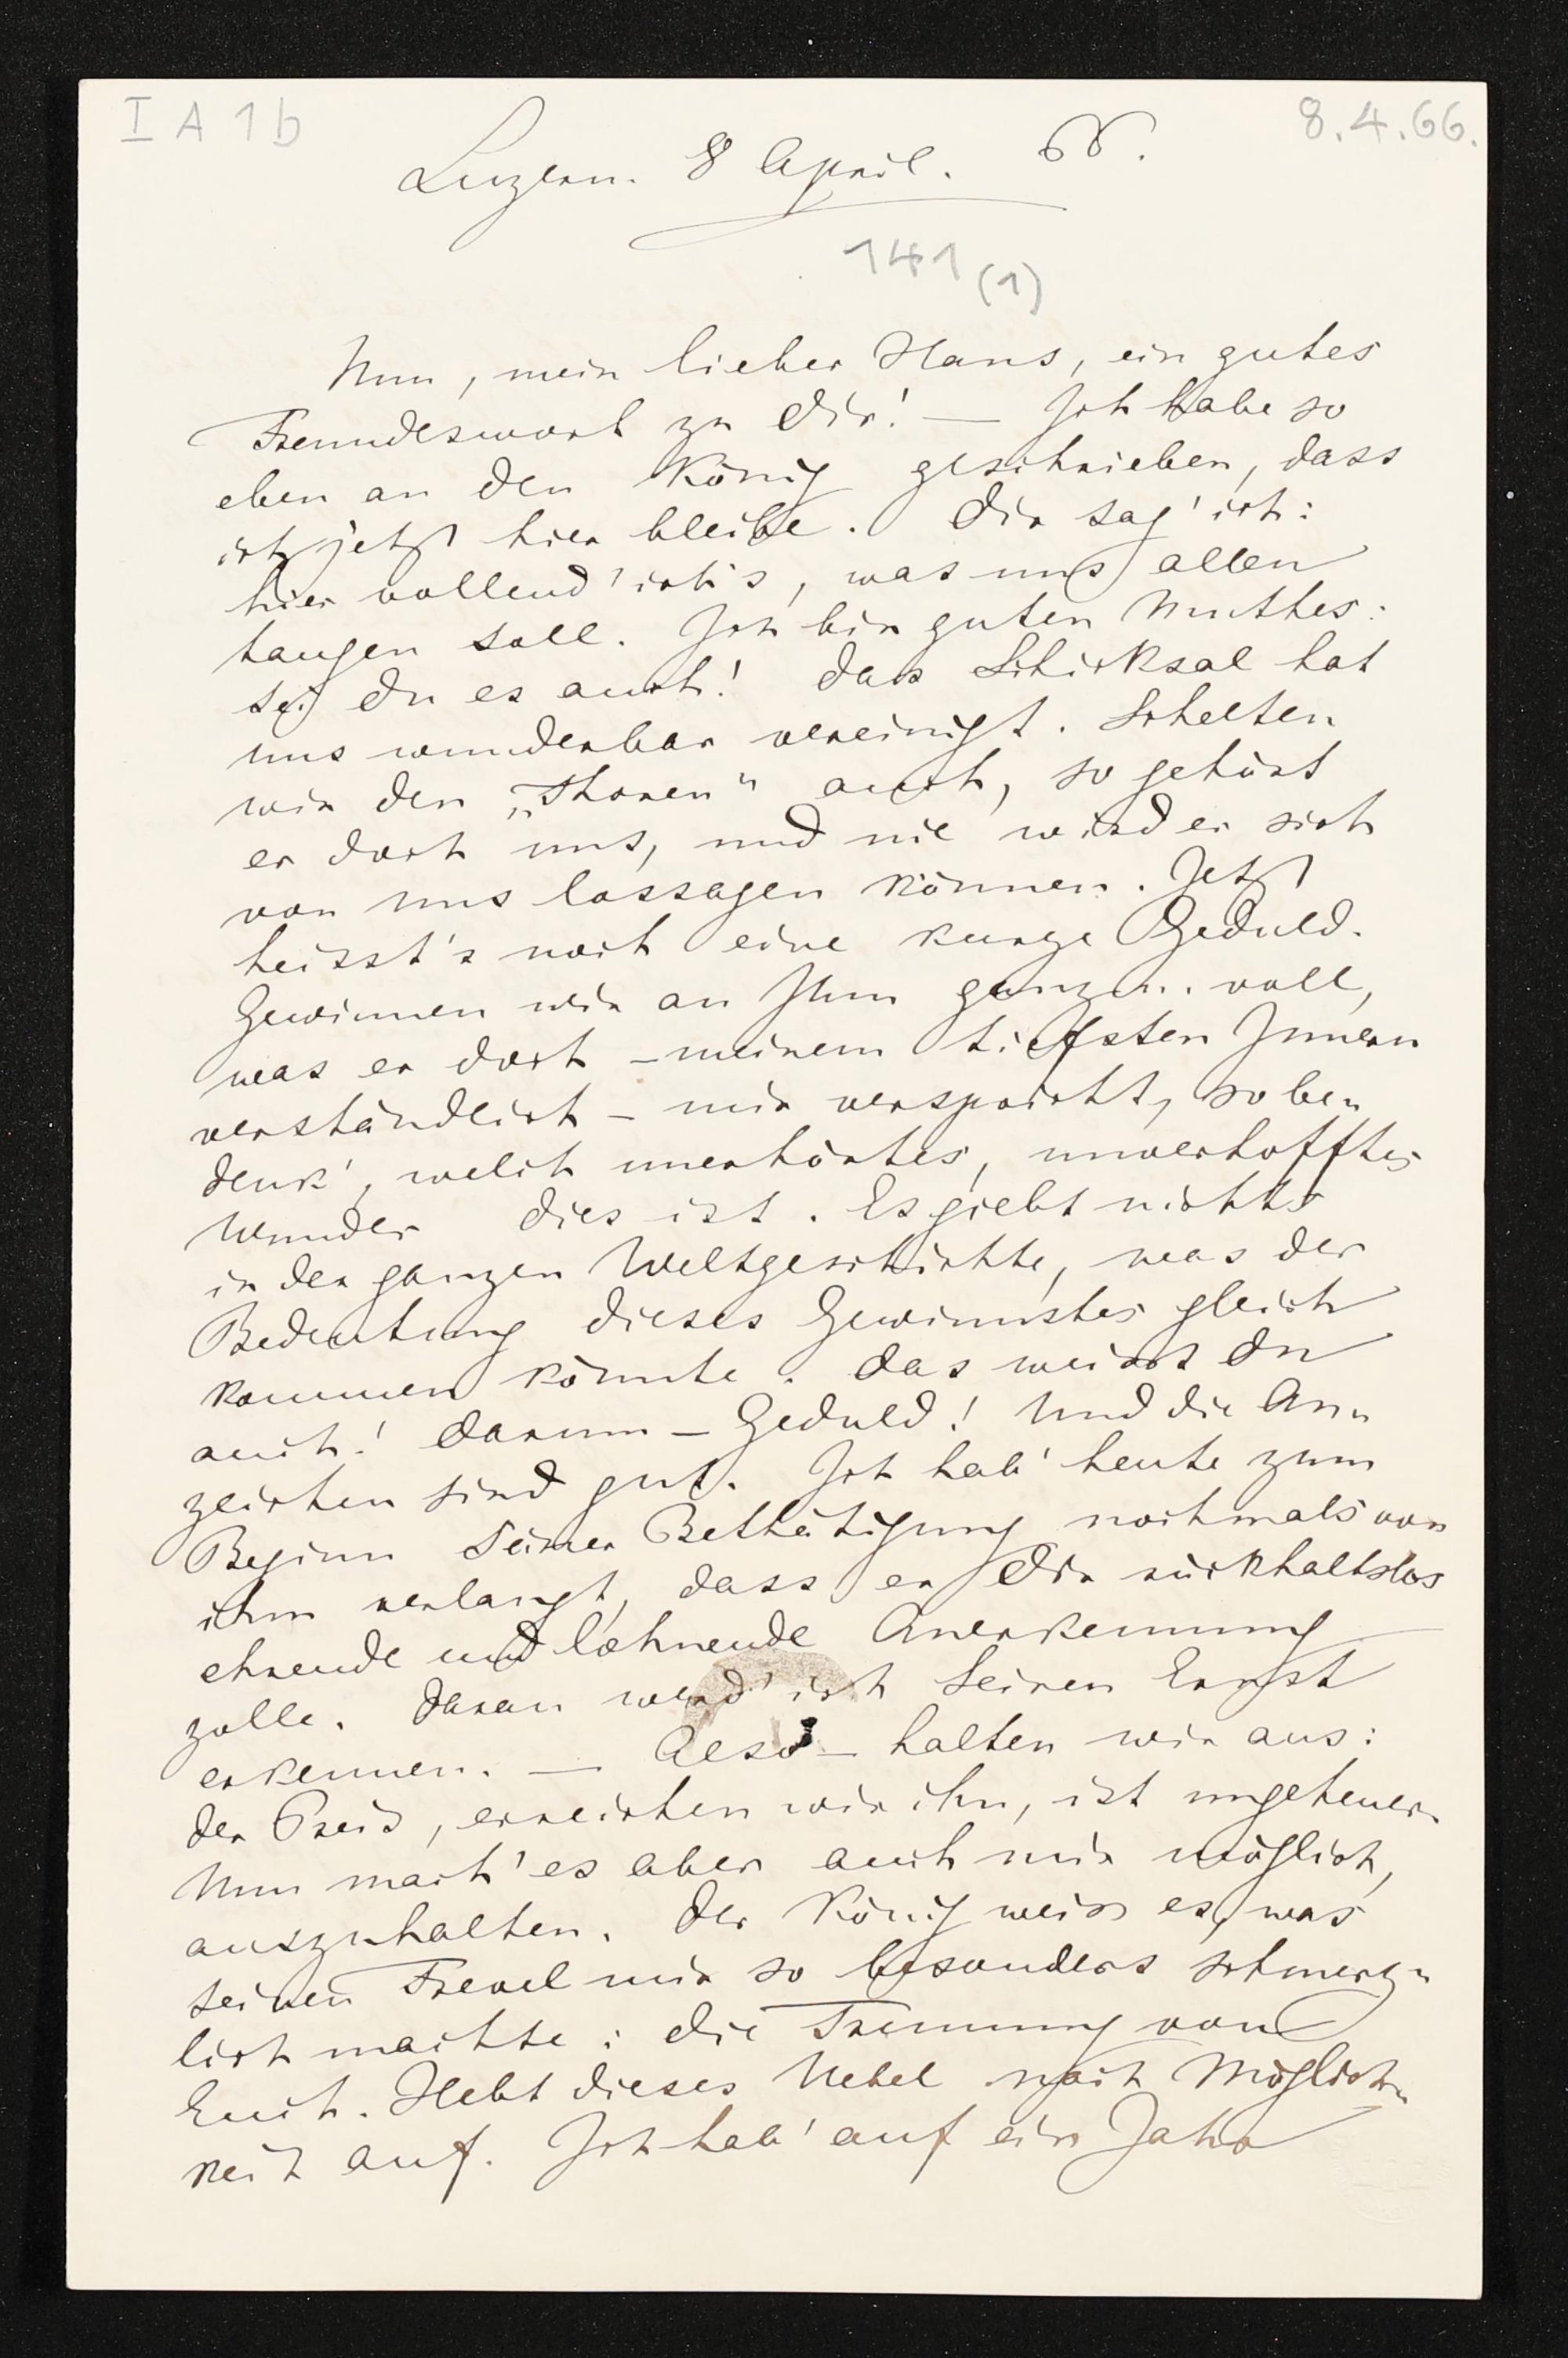 I A 1 b
8.4.66.
Luzern. 8 April. 66.
141 (1)
Nun, mein lieber Hans, ein gutes
Freundeswort zu Dir! — Ich habe so
eben an den König geschrieben, dass
ich jetzt hier bleibe. Dir sag' ich:
hier vollend' ich's, was uns allen
taugen soll. Ich bin guten Muthes:
sei Du es auch! Das Schicksal hat
uns wunderbar vereinigt. Schelten
wir den „Thoren" auch, so gehört
er doch uns, und nie wird er sich
von uns lossagen können. Jetzt
heisst's noch eine kurze Geduld.
Gewinnen wir an Ihm ganz u. voll,
was er doch – meinem tiefsten Innern
verständlich – mir verspricht, so be-
denk', welch unerhörtes, unverhofftes
Wunder dies ist. Es giebt nichts
in der ganzen Weltgeschichte, was der
Bedeutung dieses Gewinnstes gleich
kommen könnte. Das weisst Du
auch! Darum – Geduld! Und die An-
zeichen sind gut. Ich hab' heute zum
Beginn seiner Bethätigung nochmals von
ihm verlangt, dass er Dir rückhaltslos
ehrende und lohnende Anerkennung
zolle. Daran werd' ich Seinen Ernst
erkennen. — Also – halten wir aus:
der Preis, erreichen wir ihn, ist ungeheuer.
Nun mach' es aber auch mir möglich,
auszuhalten. Der König weiss es, was
seinen Frevel mir so besonders schmerz-
lich machte: die Trennung von
Euch. Hebt dieses Uebel nach Möglich-
keit auf. Ich hab' auf ein Jahr